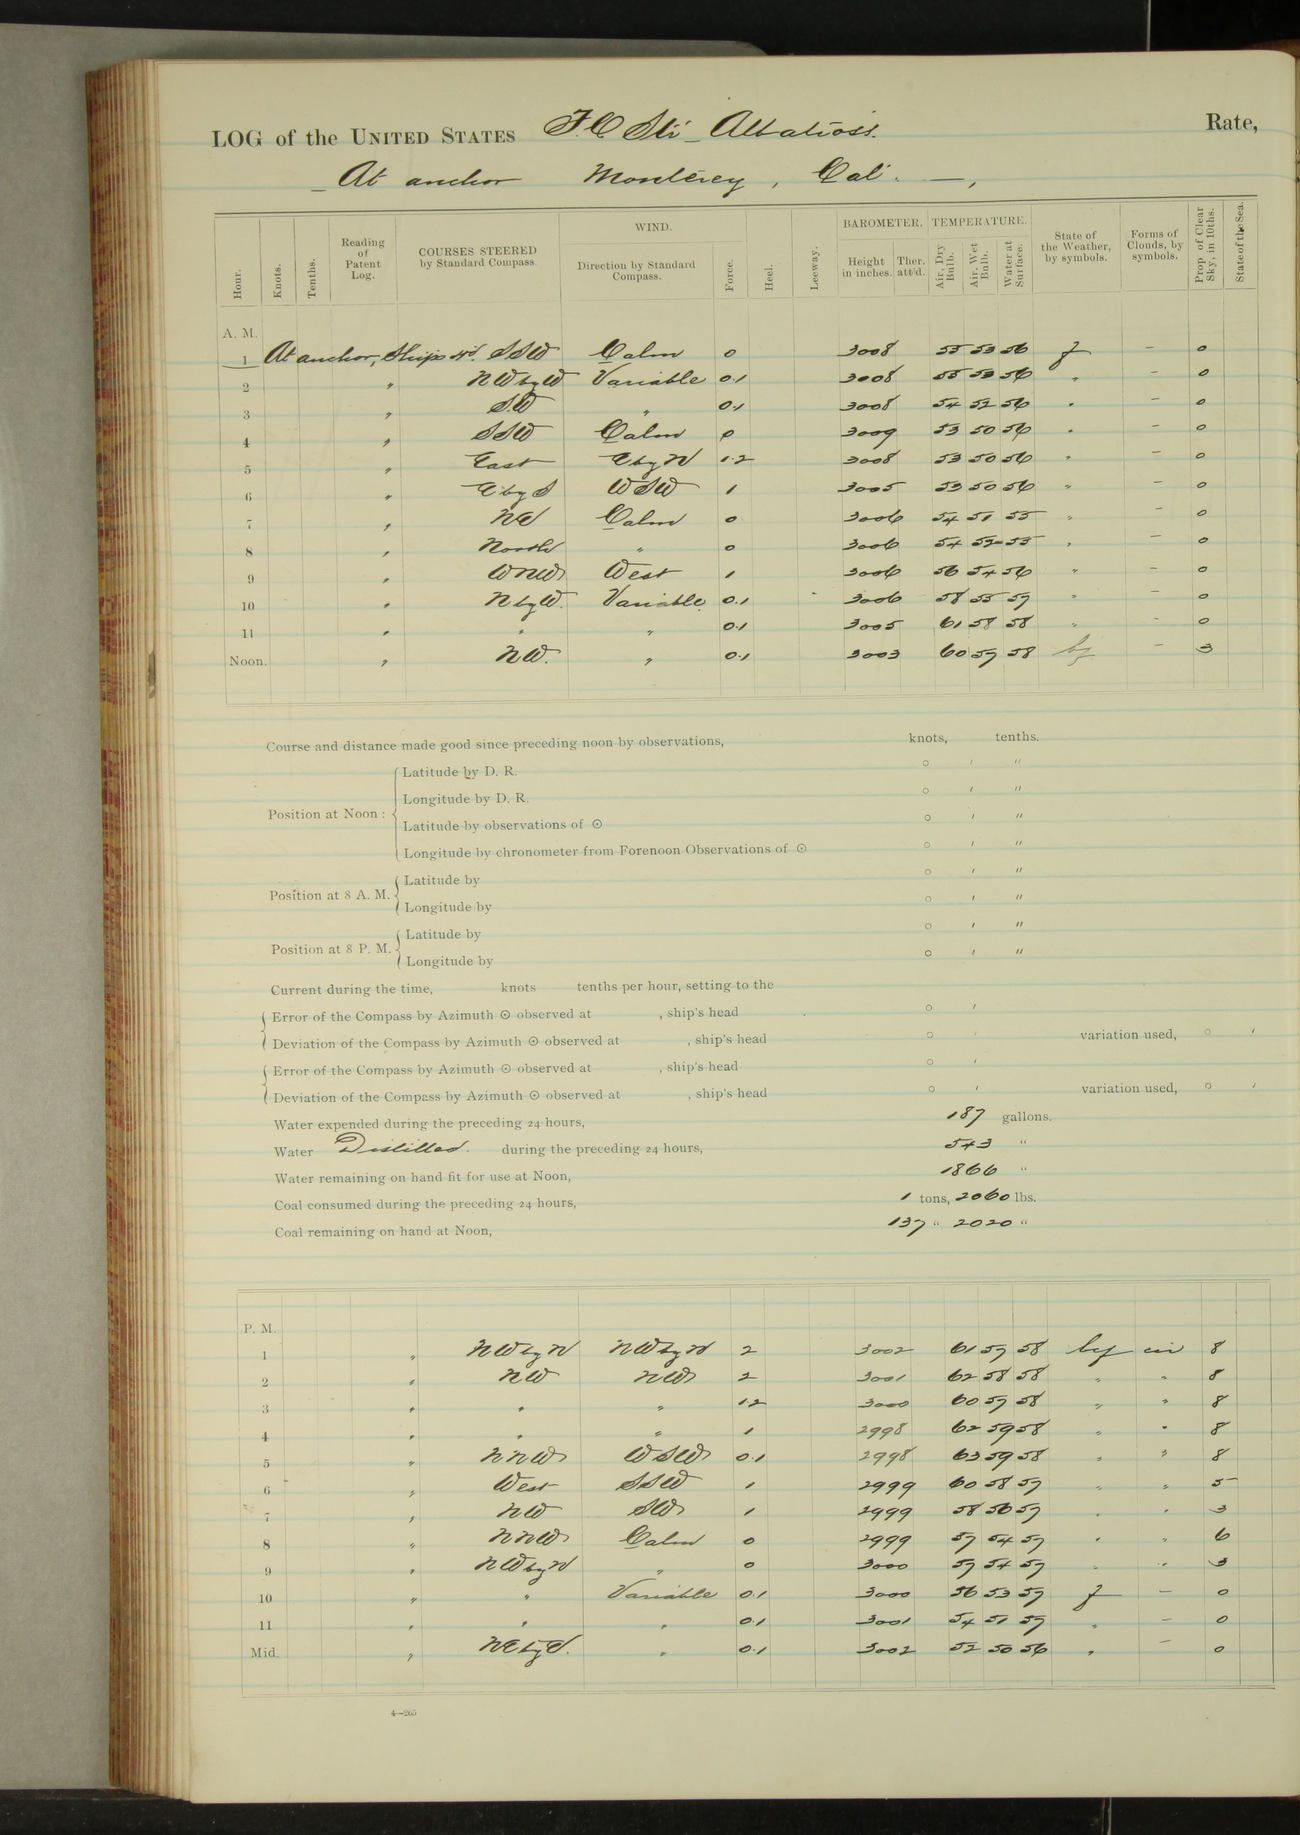 LOG of the UNITED STATES F. C. Str. Albatross. Rate,
At anchor Monterey, Cal. —,
Hour. Knots. Tenths. Reading of Patent Log. COURSES STEERED by Standard Compass. WIND. Direction by Standard Compass. Force. Heel. Leeway. BAROMETER. Height in inches. Ther. att'd. TEMPERATURE. Air, Dry Bulb. Air, Wet Bulb. Water at Surface. State of the Weather, by symbols. Forms of Clouds, by symbols. Prop. of Clear Sky, in 10ths. State of the Sea.
A. M.
1 At anchor, Ships Hd. SSW Calm 0 3008 55 53 56 f — 0
2 " NW by W Variable 0.1 3008 55 53 56 " — 0
3 " SW " 0.1 3008 54 52 56 " — 0
4 " SSW Calm 0 3009 53 50 56 " — 0
5 " East E by N 1.2 3008 53 50 56 " — 0
6 " E by S WSW 1 3005 53 50 56 " — 0
7 " NE Calm 0 3006 54 51 55 " — 0
8 " North " 0 3006 54 52 55 " — 0
9 " WNW West 1 3006 56 54 56 " — 0
10 " N by W. Variable 0.1 3006 58 55 57 " — 0
11 " " " 0.1 3005 61 58 58 " — 0
Noon. " NW. " 0.1 3003 60 57 58 bf — 3
Course and distance made good since preceding noon by observations, knots, tenths.
Position at Noon: Latitude by D. R. ° ′ ″
Longitude by D. R. ° ′ ″
Latitude by observations of ☉ ° ′ ″
Longitude by chronometer from Forenoon Observations of ☉ ° ′ ″
Position at 8 A. M. Latitude by ° ′ ″
Longitude by ° ′ ″
Position at 8 P. M. Latitude by ° ′ ″
Longitude by ° ′ ″
Current during the time, knots tenths per hour, setting to the
Error of the Compass by Azimuth ☉ observed at , ship's head ° ′
Deviation of the Compass by Azimuth ☉ observed at , ship's head ° ′ variation used, ° ′
Error of the Compass by Azimuth ☉ observed at , ship's head ° ′
Deviation of the Compass by Azimuth ☉ observed at , ship's head ° ′ variation used, ° ′
Water expended during the preceding 24 hours, 187 gallons.
Water Distilled. during the preceding 24 hours, 543 "
Water remaining on hand fit for use at Noon, 1866 "
Coal consumed during the preceding 24 hours, 1 tons, 2060 lbs.
Coal remaining on hand at Noon, 137 " 2020 "
P. M.
1 " NW by N NW by N 2 3002 61 57 58 bf cir 8
2 " NW NW 2 3001 62 58 58 " " 8
3 " " " 1.2 3000 60 57 58 " " 8
4 " " " 1 2998 62 59 58 " " 8
5 " NNW WSW 0.1 2998 63 59 58 " " 8
6 " West SSW 1 2999 60 58 57 " " 5
7 " NW SW 1 2999 58 56 57 " " 3
8 " NNW Calm 0 2999 57 54 57 " " 6
9 " NW by N " 0 3000 57 54 57 " " 3
10 " " Variable 0.1 3000 56 53 57 f — 0
11 " " " 0.1 3001 54 51 57 " — 0
Mid. " NE by E. " 0.1 3002 52 50 56 " — 0
4—265